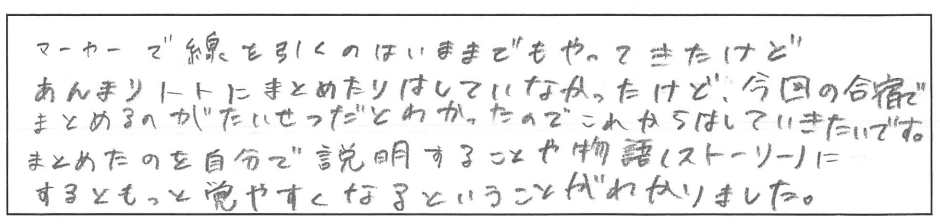 マーカーで線を引くのはいままでもやってきたけど
あんまりノートにまとめたりはしていなかったけど、今回の合宿で
まとめるのがたいせつだとわかったのでこれからはしていきたいです。
まとめたのを自分で説明することや物語(ストーリー)に
するともっと覚やすくなるということがわかりました。